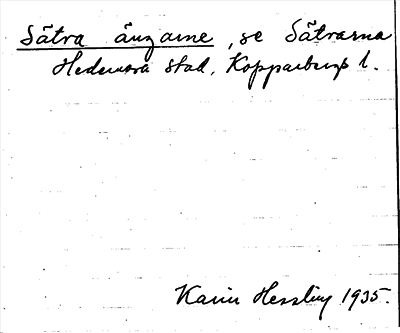 Sätra ängarne, se Sätrarna
Hedemora stad, Kopparbergs l.
Karin Hessling 1935.